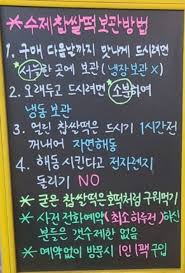 *수제찹쌀떡보관방법
1. 구매 다음날까지 맛나게 드시려면
서늘한 곳에 보관 (냉장보관 X)
2. 오래두고 드시려면 소분하여
냉동 보관
3. 얼린 찹쌀떡은 드시기 1시간전
꺼내어 자연해동
4. 해동 시킨다고 전자렌지
돌리기 NO
*굳은 찹쌀떡은호떡처럼 구워먹기
*사전 전화예약(최소하루전)하신
분들은 갯수제한 없음
*예약없이 방문시 1인 1팩 구입